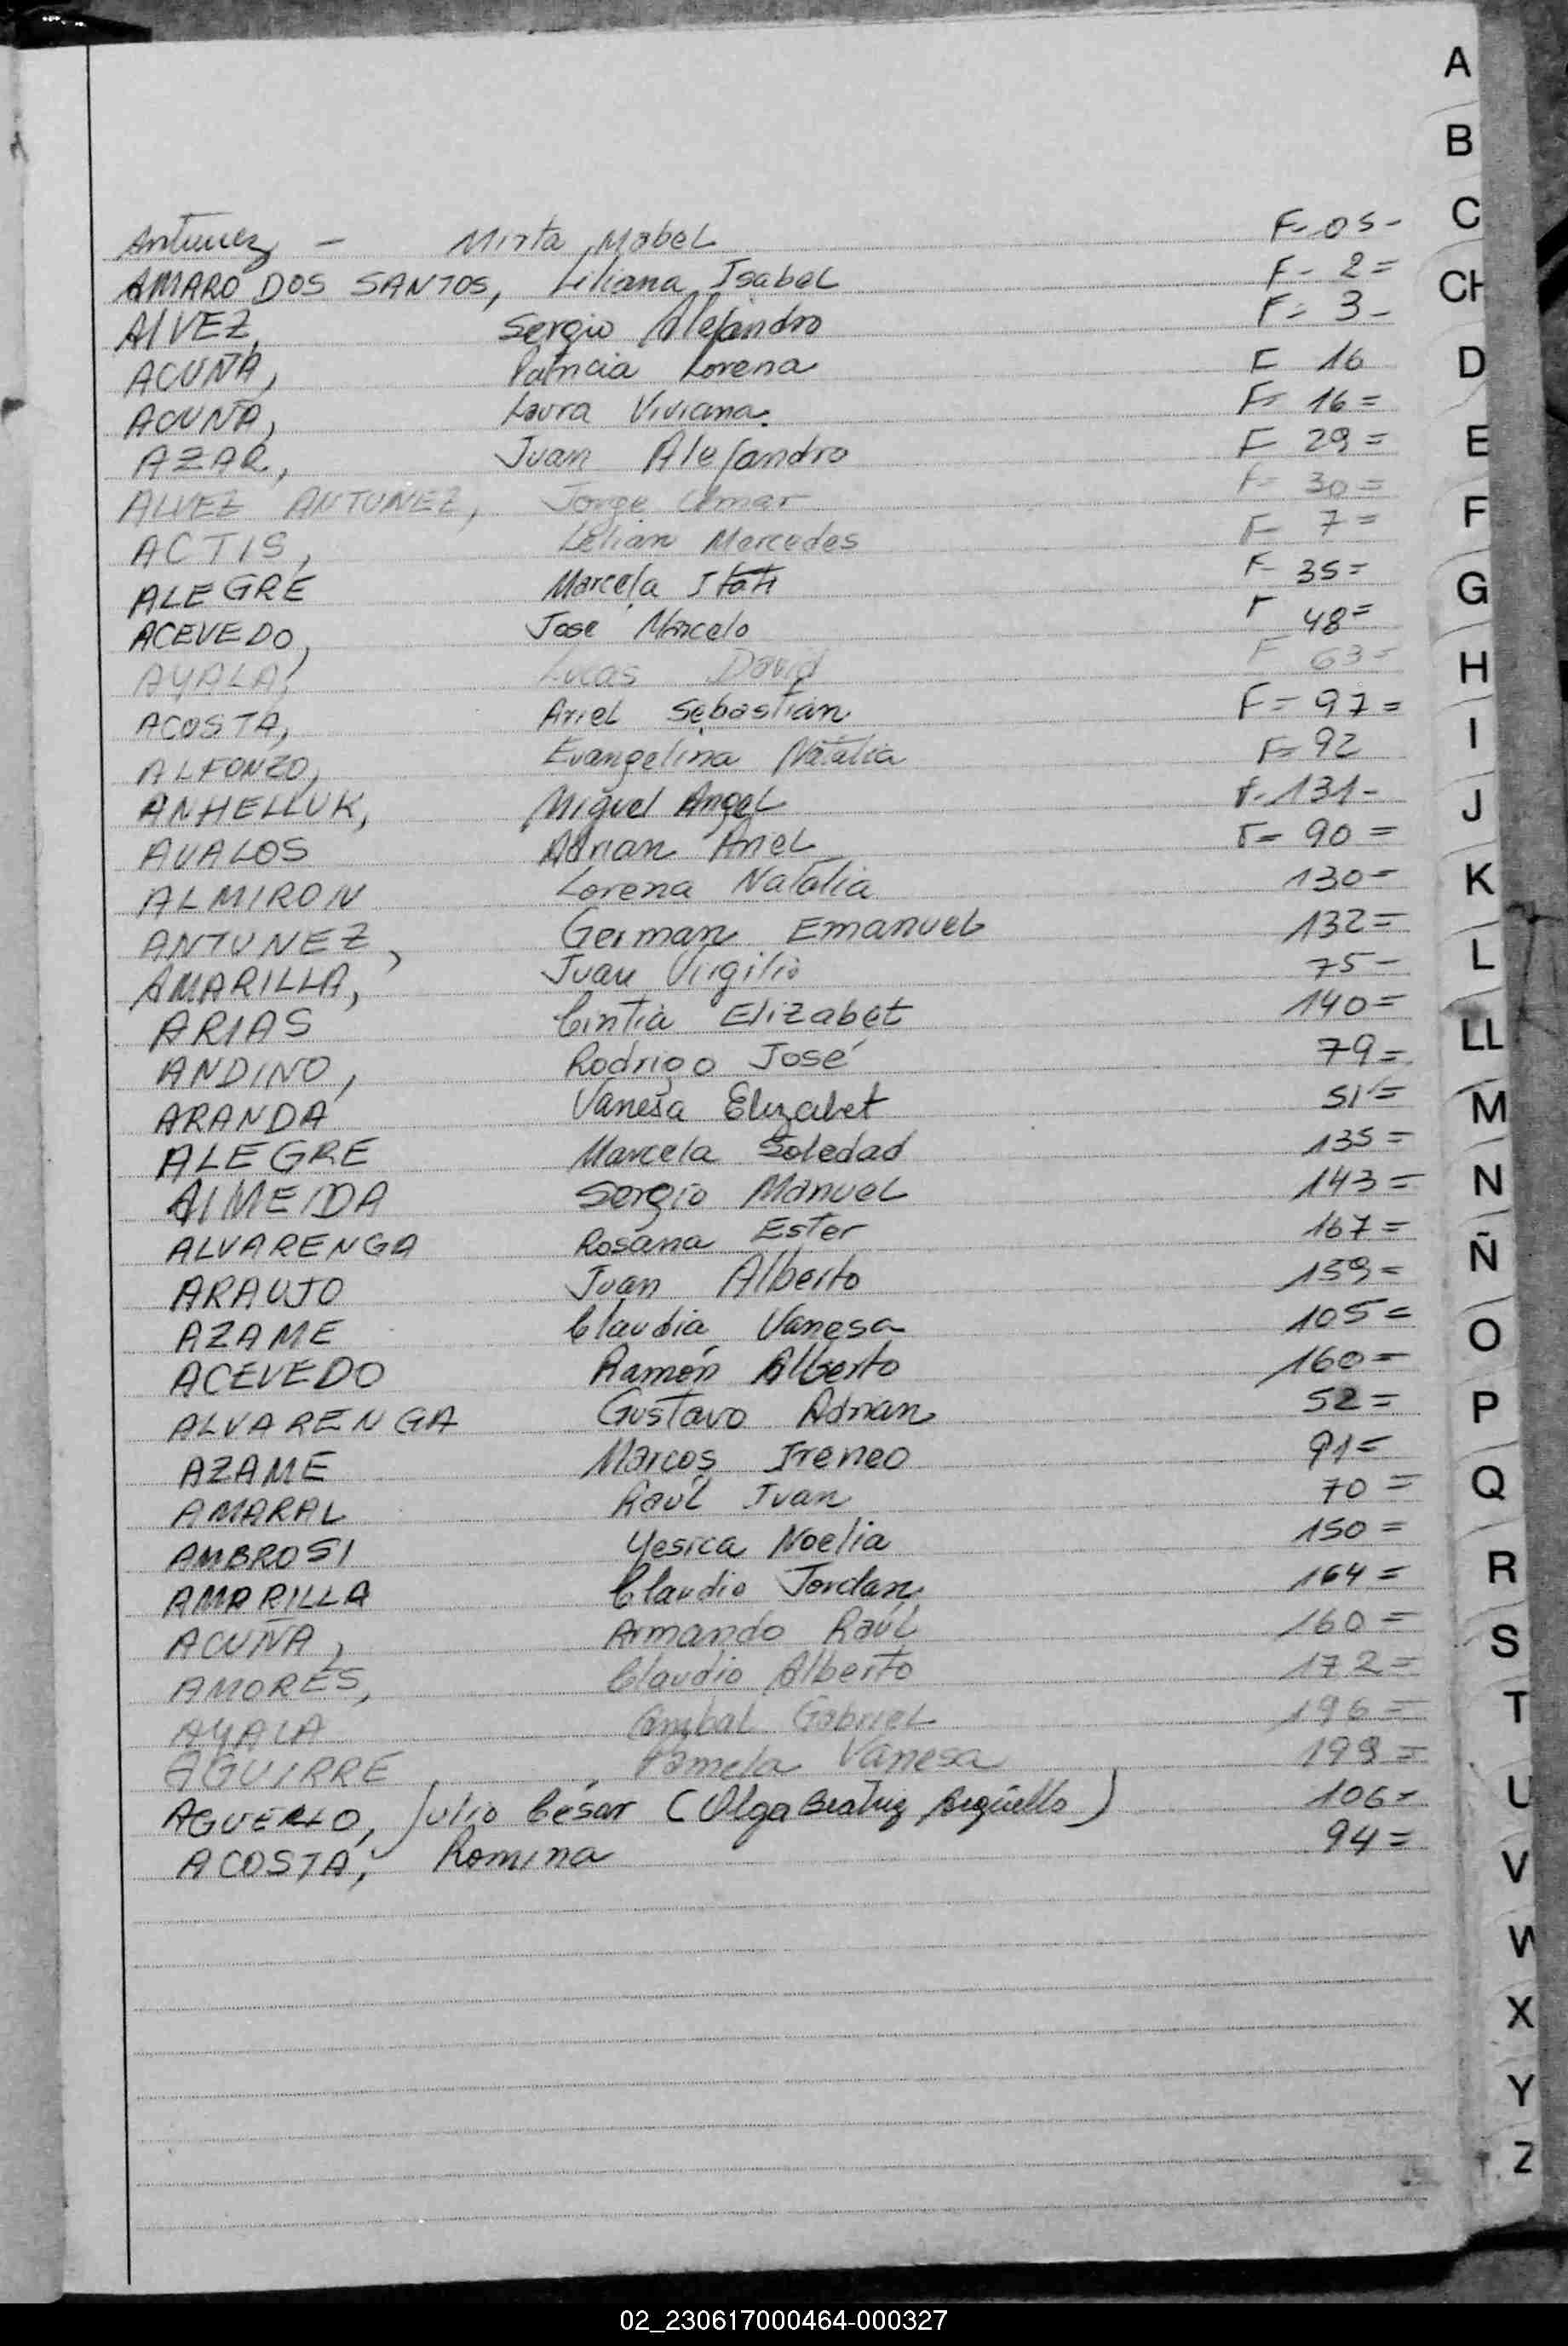 Antunez - Mirta Mabel F- 05-
AMARO DOS SANTOS, Liliana Isabel F- 2=
AlVEZ, Sergio Alejandro F= 3-
ACUÑA, Patricia Lorena F 16
ACUÑA, Laura Viviana. F= 16=
AZAR, Juan Alejandro F 29=
ALVEZ ANTUNEZ, Jorge Omar F= 30=
ACTIS, Lelian Mercedes F- 7=
ALEGRE Marcela Itati F- 35=
ACEVEDO, Jose Marcelo F 48=
AYALA, Lucas David F 63=
ACOSTA, Ariel Sebastian F= 97=
ALFONZO, Evangelina Natalia F= 92
ANHELLUK, Miguel Angel F-131-
AVALOS Adrian Ariel F= 90=
ALMIRON Lorena Natalia 130=
ANTUNEZ, German Emanuel 132=
AMARILLA, Juan Virgilio 75-
ARIAS Cintia Elizabet 140=
ANDINO, Rodrigo José 79=
ARANDA Vanesa Elizabet 51=
ALEGRE Marcela Soledad 135=
AlMEIDA Sergio Manuel 143=
ALVARENGA Rosana Ester 167=
ARAUJO Juan Alberto 159=
AZAME Claudia Vanesa 105=
ACEVEDO Ramón Alberto 160=
ALVARENGA Gustavo Adrian 52=
AZAME Marcos Ireneo 91=
AMARAL Raúl Juan 70=
AMBROSI Yesica Noelia 150=
AMARILLA Claudio Jordan 164=
ACUÑA, Armando Raúl 160=
AMORES, Claudio Alberto 172=
AYALA Anibal Gabriel 196=
AGUIRRE Pamela Vanesa 199=
AGUERLO, Julio César (Olga Beatriz Argüello) 106=
ACOSTA, Romina 94=
A
B
C
CH
D
E
F
G
H
I
J
K
L
LL
M
N
Ñ
O
P
Q
R
S
T
U
V
W
X
Y
Z
02_230617000464-000327